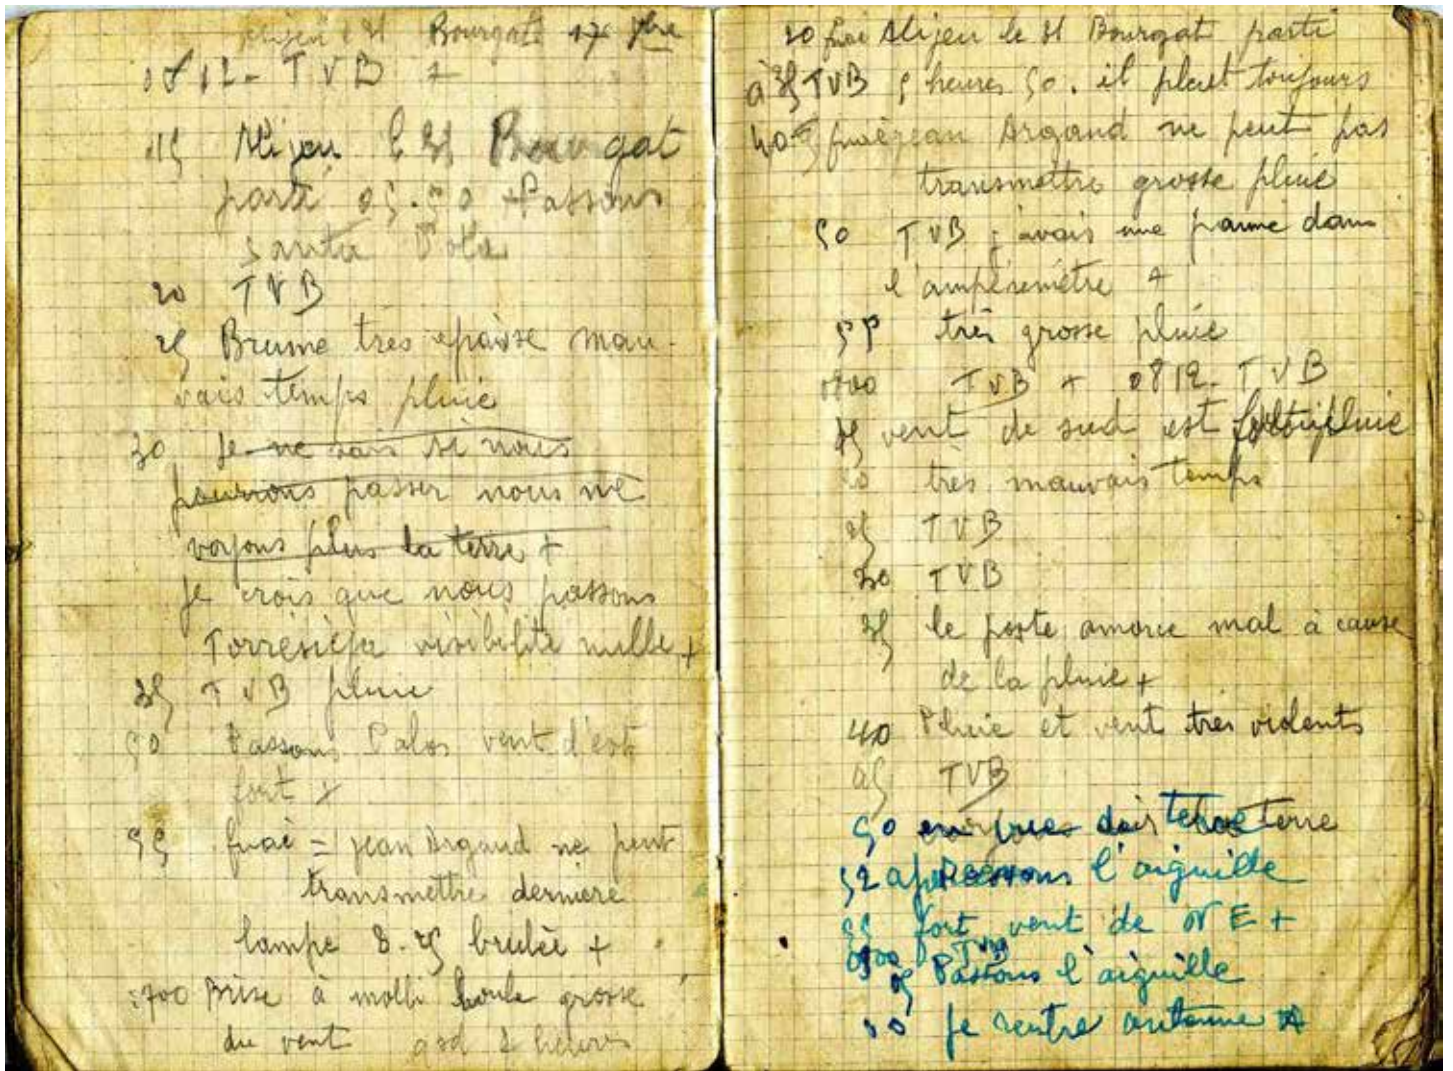 Bourgat 17 9bre
0812 - TVB +
15 Alijeu l 31 Bourgat
parti 05.50 + Passons
Santa Pola
20 TVB
25 Brume très epaisse mau-
vais temps pluie
30 Je ne sais si nous
pourrons passer nous ne
voyons plus la terre +
je crois que nous passons
Torrevieja visibilité nulle +
35 TVB pluie
50 Passons Palos vent d'est
fort +
55 fuaè = jean Argand ne peut
transmettre derniere
lampe 8.25 brulée +
0700 Brise à molli houle grosse
du vent 2 heures
20 fuai Alijeu le 31 Bourgat parti
à 35 TVB 5 heures 50. il pleut toujours
40 fuaè jean Argand ne peut pas
transmettre grosse pluie
50 TVB j'avais une panne dans
l'ampéremètre +
55 très grosse pluie
0800 TVB + 0812 - TVB
15 vent de sud est pluie
20 très mauvais temps
25 TVB
30 TVB
35 le poste amorce mal à cause
de la pluie +
40 Pluie et vent très violents
45 TVB
50 terre
52 apercevons l'aiguille
55 fort vent de NE +
0900 TVB
05 Passons l'aiguille
10 je rentre antenne